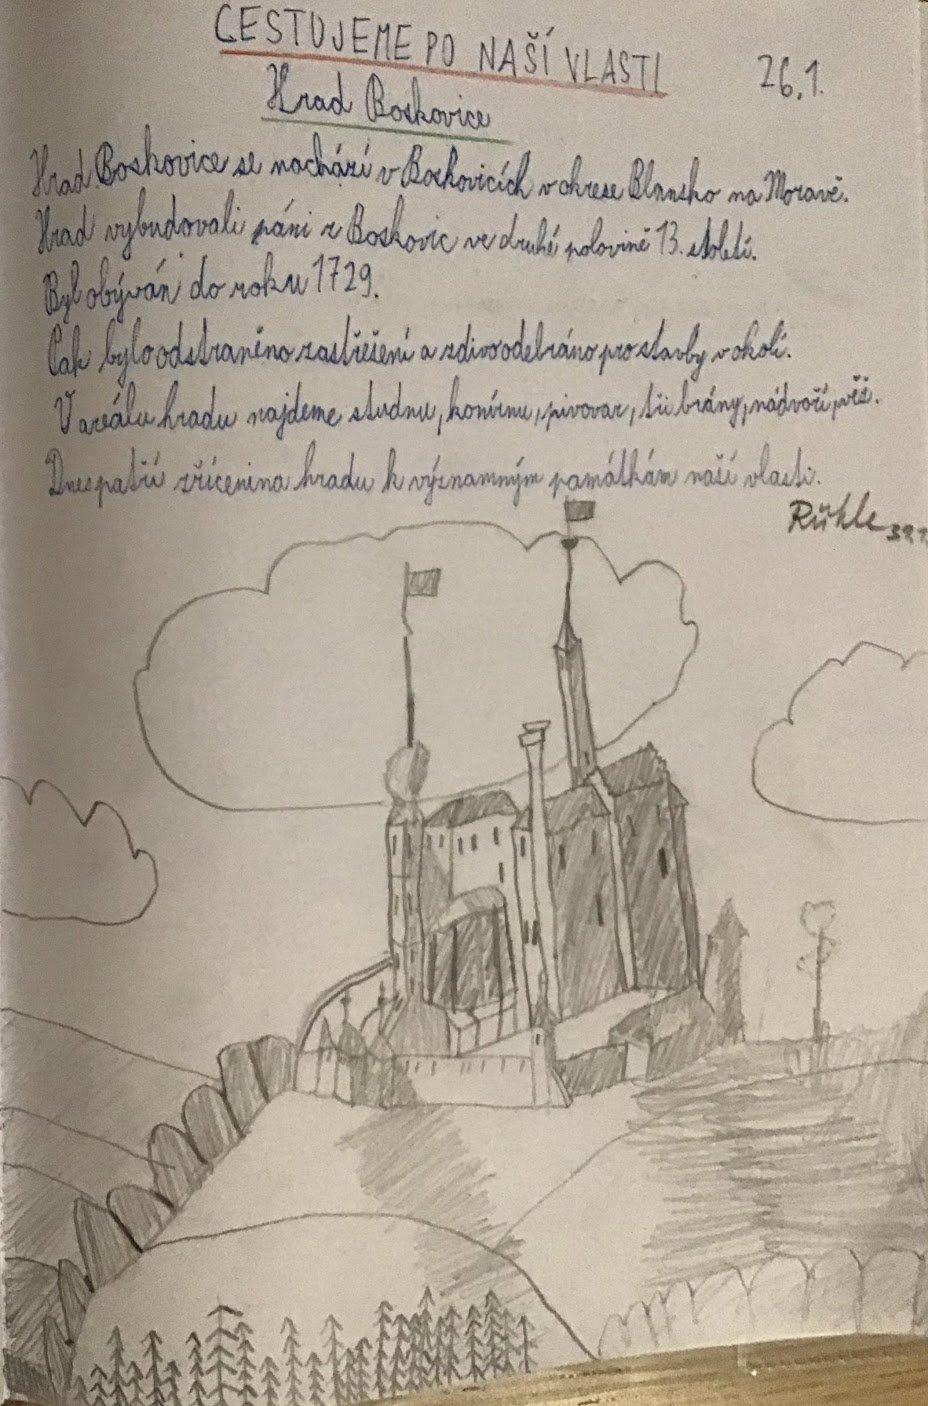 CESTUJEME PO NAŠÍ VLASTI
26.1.
Hrad Boskovice
Hrad Boskovice se nachází v Boskovicích v okrese Blansko na Moravě.
Hrad vybudovali páni z Boskovic ve druhé polovině 13. století.
Byl obýván do roku 1729.
Pak bylo odstraněno zastřešení a zdivo odebráno pro stavby v okolí.
V areálu hradu najdeme studnu, konírnu, pivovar, tři brány, nádvoří, věž.
Dnes patří zřícenina hradu k významným památkám naší vlasti.